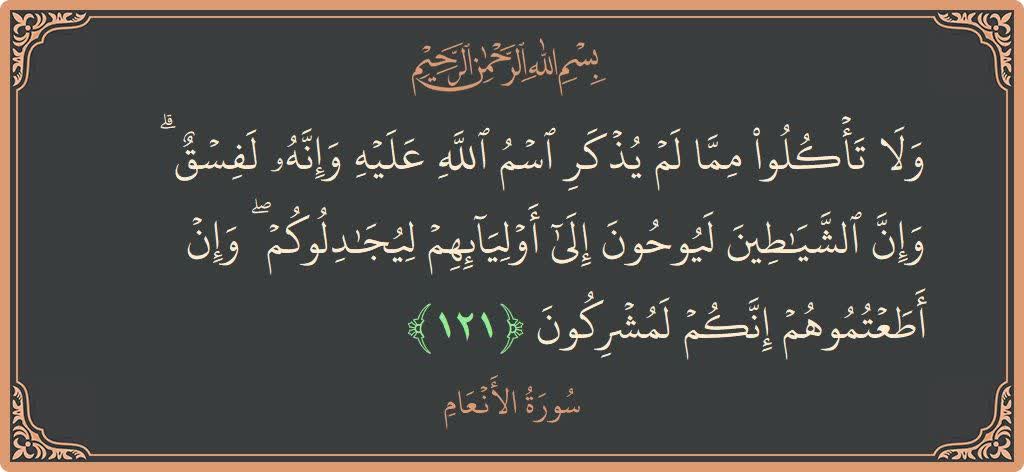 بِسْمِ اللَّهِ الرَّحْمَٰنِ الرَّحِيمِ
وَلَا تَأْكُلُوا۟ مِمَّا لَمْ يُذْكَرِ ٱسْمُ ٱللَّهِ عَلَيْهِ وَإِنَّهُۥ لَفِسْقٌ ۗ
وَإِنَّ ٱلشَّيَـٰطِينَ لَيُوحُونَ إِلَىٰٓ أَوْلِيَآئِهِمْ لِيُجَـٰدِلُوكُمْ ۖ وَإِنْ
أَطَعْتُمُوهُمْ إِنَّكُمْ لَمُشْرِكُونَ ﴿١٢١﴾
سُورَةُ الأَنْعَامِ